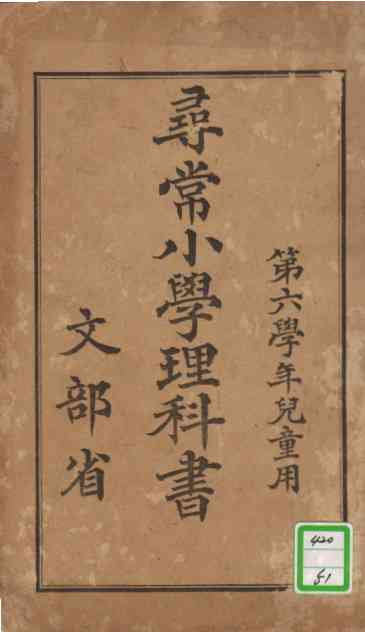 第六學年兒童用
尋常小學理科書
文部省
420
51